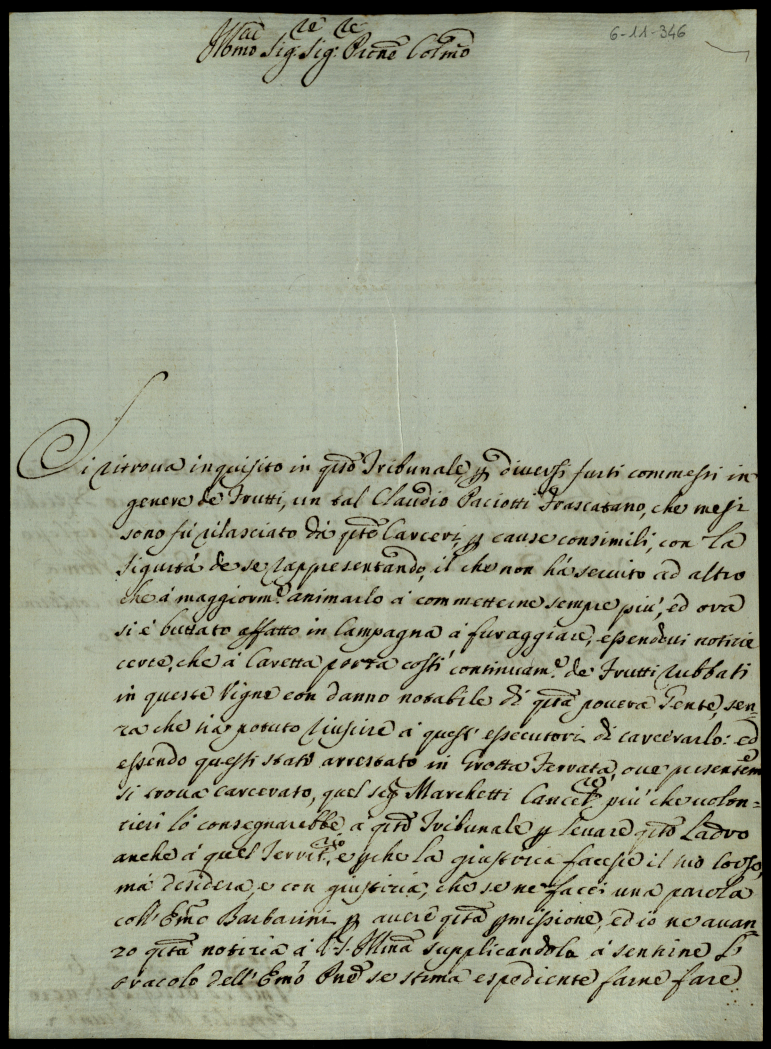 6-11-346
Illmo Sig.r Sig.r Prõne Colmo
Si ritroua inquisito in qsto Tribunale p diuersi furti commessi in
genere de Frutti, un tal Claudio Paciotti Frascatano, che mesi
sono fù rilasciato dà qste Carceri, p cause consimili, con la
sigurtà de se rappresentando, il che non hà seruito ad altro
che à maggiorm.e animarlo à commetterne sempre più, ed ora
si è buttato affatto in Campagna à furaggiare, essendoui notizie
certe, che à Caretta porta costì continuam.e de Frutti rubbati
in queste Vigne con danno notabile di qsta pouera Gente, sen=
za che sia potuto riuscire à questi essecutori di carcerarlo: ed
essendo questi stato arrestato in Grotta Ferrata, oue presentem.e
si troua carcerato, quel Sig.r Marchetti Cancell.re più che uolon=
tieri lo consegnarebbe à qsto Tribunale p leuare qsto Ladro
anche à quel Territ.rio, e pche la giustizia facesse il suo corso,
mà desidera, e con giustizia, che se ne facci una parola
coll'Emo Barbarini p auere qsta pmissione, ed io ne auan
zo qsta notizia à V.S. Illma supplicandola à sentirne l'
oracolo dell'Emo Pne se stima espediente farne fare